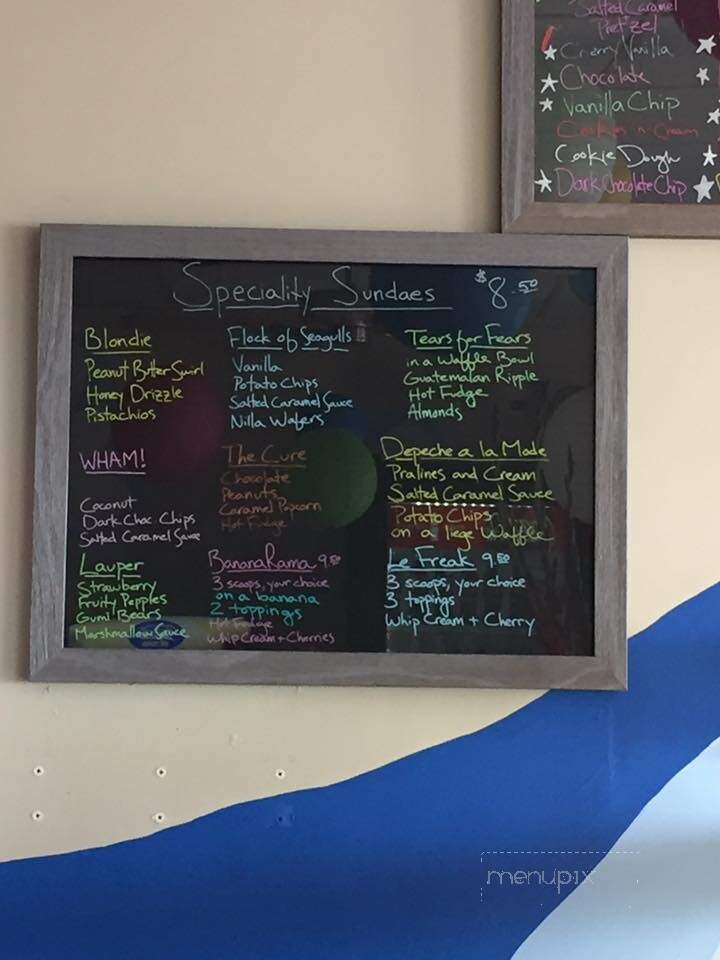 Salted Caramel
Pretzel
Cherry Vanilla
Chocolate
Vanilla Chip
Cookies n Cream
Cookie Dough
Dark Chocolate Chip
Speciality Sundaes $8.50
Blondie
Peanut Butter Swirl
Honey Drizzle
Pistachios
Flock of Seagulls
Vanilla
Potato Chips
Salted Caramel Sauce
Nilla Wafers
Tears for Fears
in a Waffle Bowl
Guatemalan Ripple
Hot Fudge
Almonds
WHAM!
Coconut
Dark Choc. Chips
Salted Caramel Sauce
The Cure
Chocolate
Peanuts
Caramel Popcorn
Hot Fudge
Depeche a la Mode
Pralines and Cream
Salted Caramel Sauce
Potato Chips
on a liege Waffle
Lauper
Strawberry
Fruity Pepples
Gumi Bears
Marshmallow Sauce
BananaRama 9.50
3 scoops, your choice
on a banana
2 toppings
Hot Fudge
Whip Cream + Cherries
Le Freak 9.50
3 scoops, your choice
3 toppings
Whip Cream + Cherry
menupix